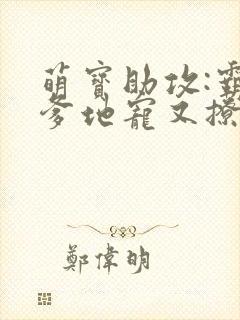 萌寶助攻:霸
爹地寵又撩
鄭偉明